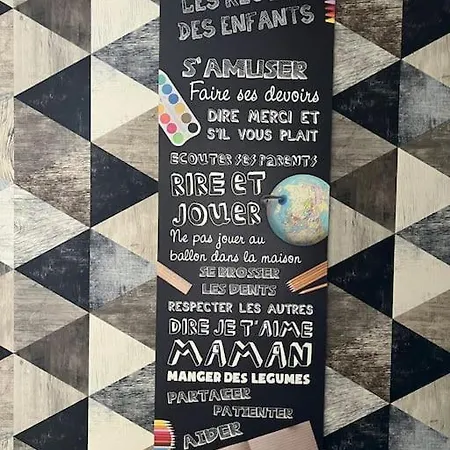 LES
DES ENFANTS
S'AMUSER
Faire ses devoirs
DIRE MERCI ET
S'IL VOUS PLAIT
ECOUTER SES PARENTS
RIRE ET
JOUER
Ne pas jouer au
ballon dans la maison
SE BROSSER
LES DENTS
RESPECTER LES AUTRES
DIRE JE T'AIME
MAMAN
MANGER DES LEGUMES
PARTAGER
PATIENTER
AIDER